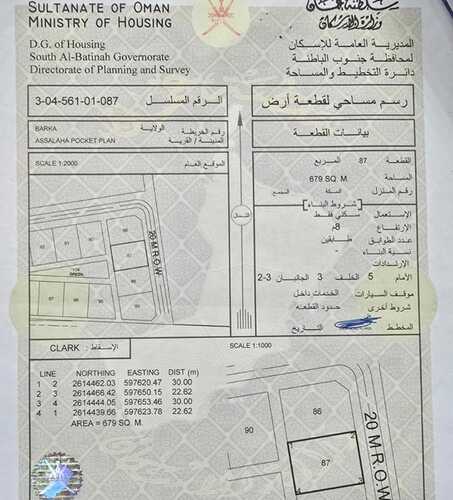 SULTANATE OF OMAN
MINISTRY OF HOUSING
سلطنة عمان
وزارة الإسكان
D.G. of Housing
South Al-Batinah Governorate
Directorate of Planning and Survey
المديرية العامة للإسكان
لمحافظة جنوب الباطنة
دائرة التخطيط والمساحة
3-04-561-01-087 الرقم المسلسل
رسم مساحي لقطعة أرض
BARKA الولاية
ASSALAHA POCKET PLAN
رقم الخريطة
المدينة / القرية
بيانات القطعة
SCALE 1:2000 الموقع العام
القطعة 87 المربع
المساحة 679 SQ. M.
رقم المنزل السكة المجمع
شروط البناء
الإستعمال سكني فقط
الإرتفاع 8م
عدد الطوابق طابقين
نسبة البناء
الإرتدادات
الأمام 5 الخلف 3 الجانبان 2-3
موقف السيارات الخدمات داخل
شروط أخرى حدود القطعه
المخطط التاريخ
الشمال
20 M.R.O.W
87
CLARK : الإسقاط
SCALE 1:1000
LINE NORTHING EASTING DIST (m)
1 2 2614462.03 597620.47 30.00
2 3 2614466.42 597650.15 22.62
3 4 2614444.05 597653.46 30.00
4 1 2614439.66 597623.78 22.62
AREA = 679 SQ. M.
86
90
1
2
87
4
3
20 M.R.O.W